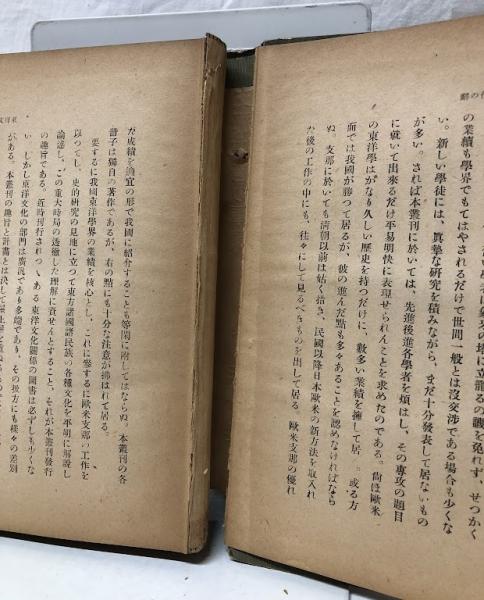 の業績も學界でもてはやされるだけで世間一般とは沒交渉である場合も少くな
い。新しい學徒には、眞摯な研究を積みながら、まだ十分發表して居ないもの
が多い。されば本叢刊に於いては、先進後進各學者を煩はし、その專攻の題目
に就いて出來るだけ平易明快に表現せられんことを求めたのである。尙ほ歐米
の東洋學はかなり久しい歷史を持つだけに、數多い業績を擁して居り、或る方
面では我國が勝つて居るが、彼の進んだ點も多々あることを認めなければなら
ぬ。支那に於いても淸朝以前は姑く措き、民國以降日本歐米の新方法を取入れ
た後の工作の中にも、往々にして見るべきものを出して居る。歐米支那の優れ
た成績を適宜の形で我國に紹介することも等閑に附してはならぬ。本叢刊の各
冊子は獨自の著作であるが、右の點にも十分な注意が拂はれて居る。
要するに我國東洋學界の業績を核心とし、これに參するに歐米支那の工作を
以つてし、史的硏究の見地に立つて東方諸國諸民族の各種文化を平明に解說し
論述し、この重大時局の透徹した理解に資せんとすること、それが本叢刊發行
の趣旨である。近時刊行されつゝある東洋文化關係の圖書は必ずしも少くな
い。しかし東洋文化の部門は廣汎であり多端であり、その扱方にも樣々の差別
がある。本叢刊の趣旨と計畫とは決して